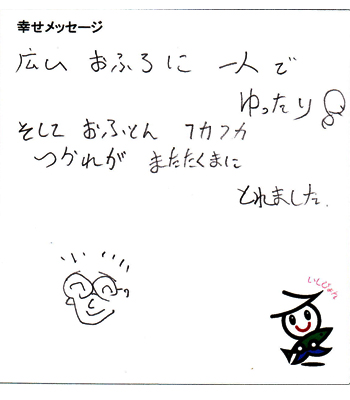 幸せメッセージ
広い おふろに 一人で
ゆったり
そして おふとん フカフカ
つかれが またたくまに
とれました.